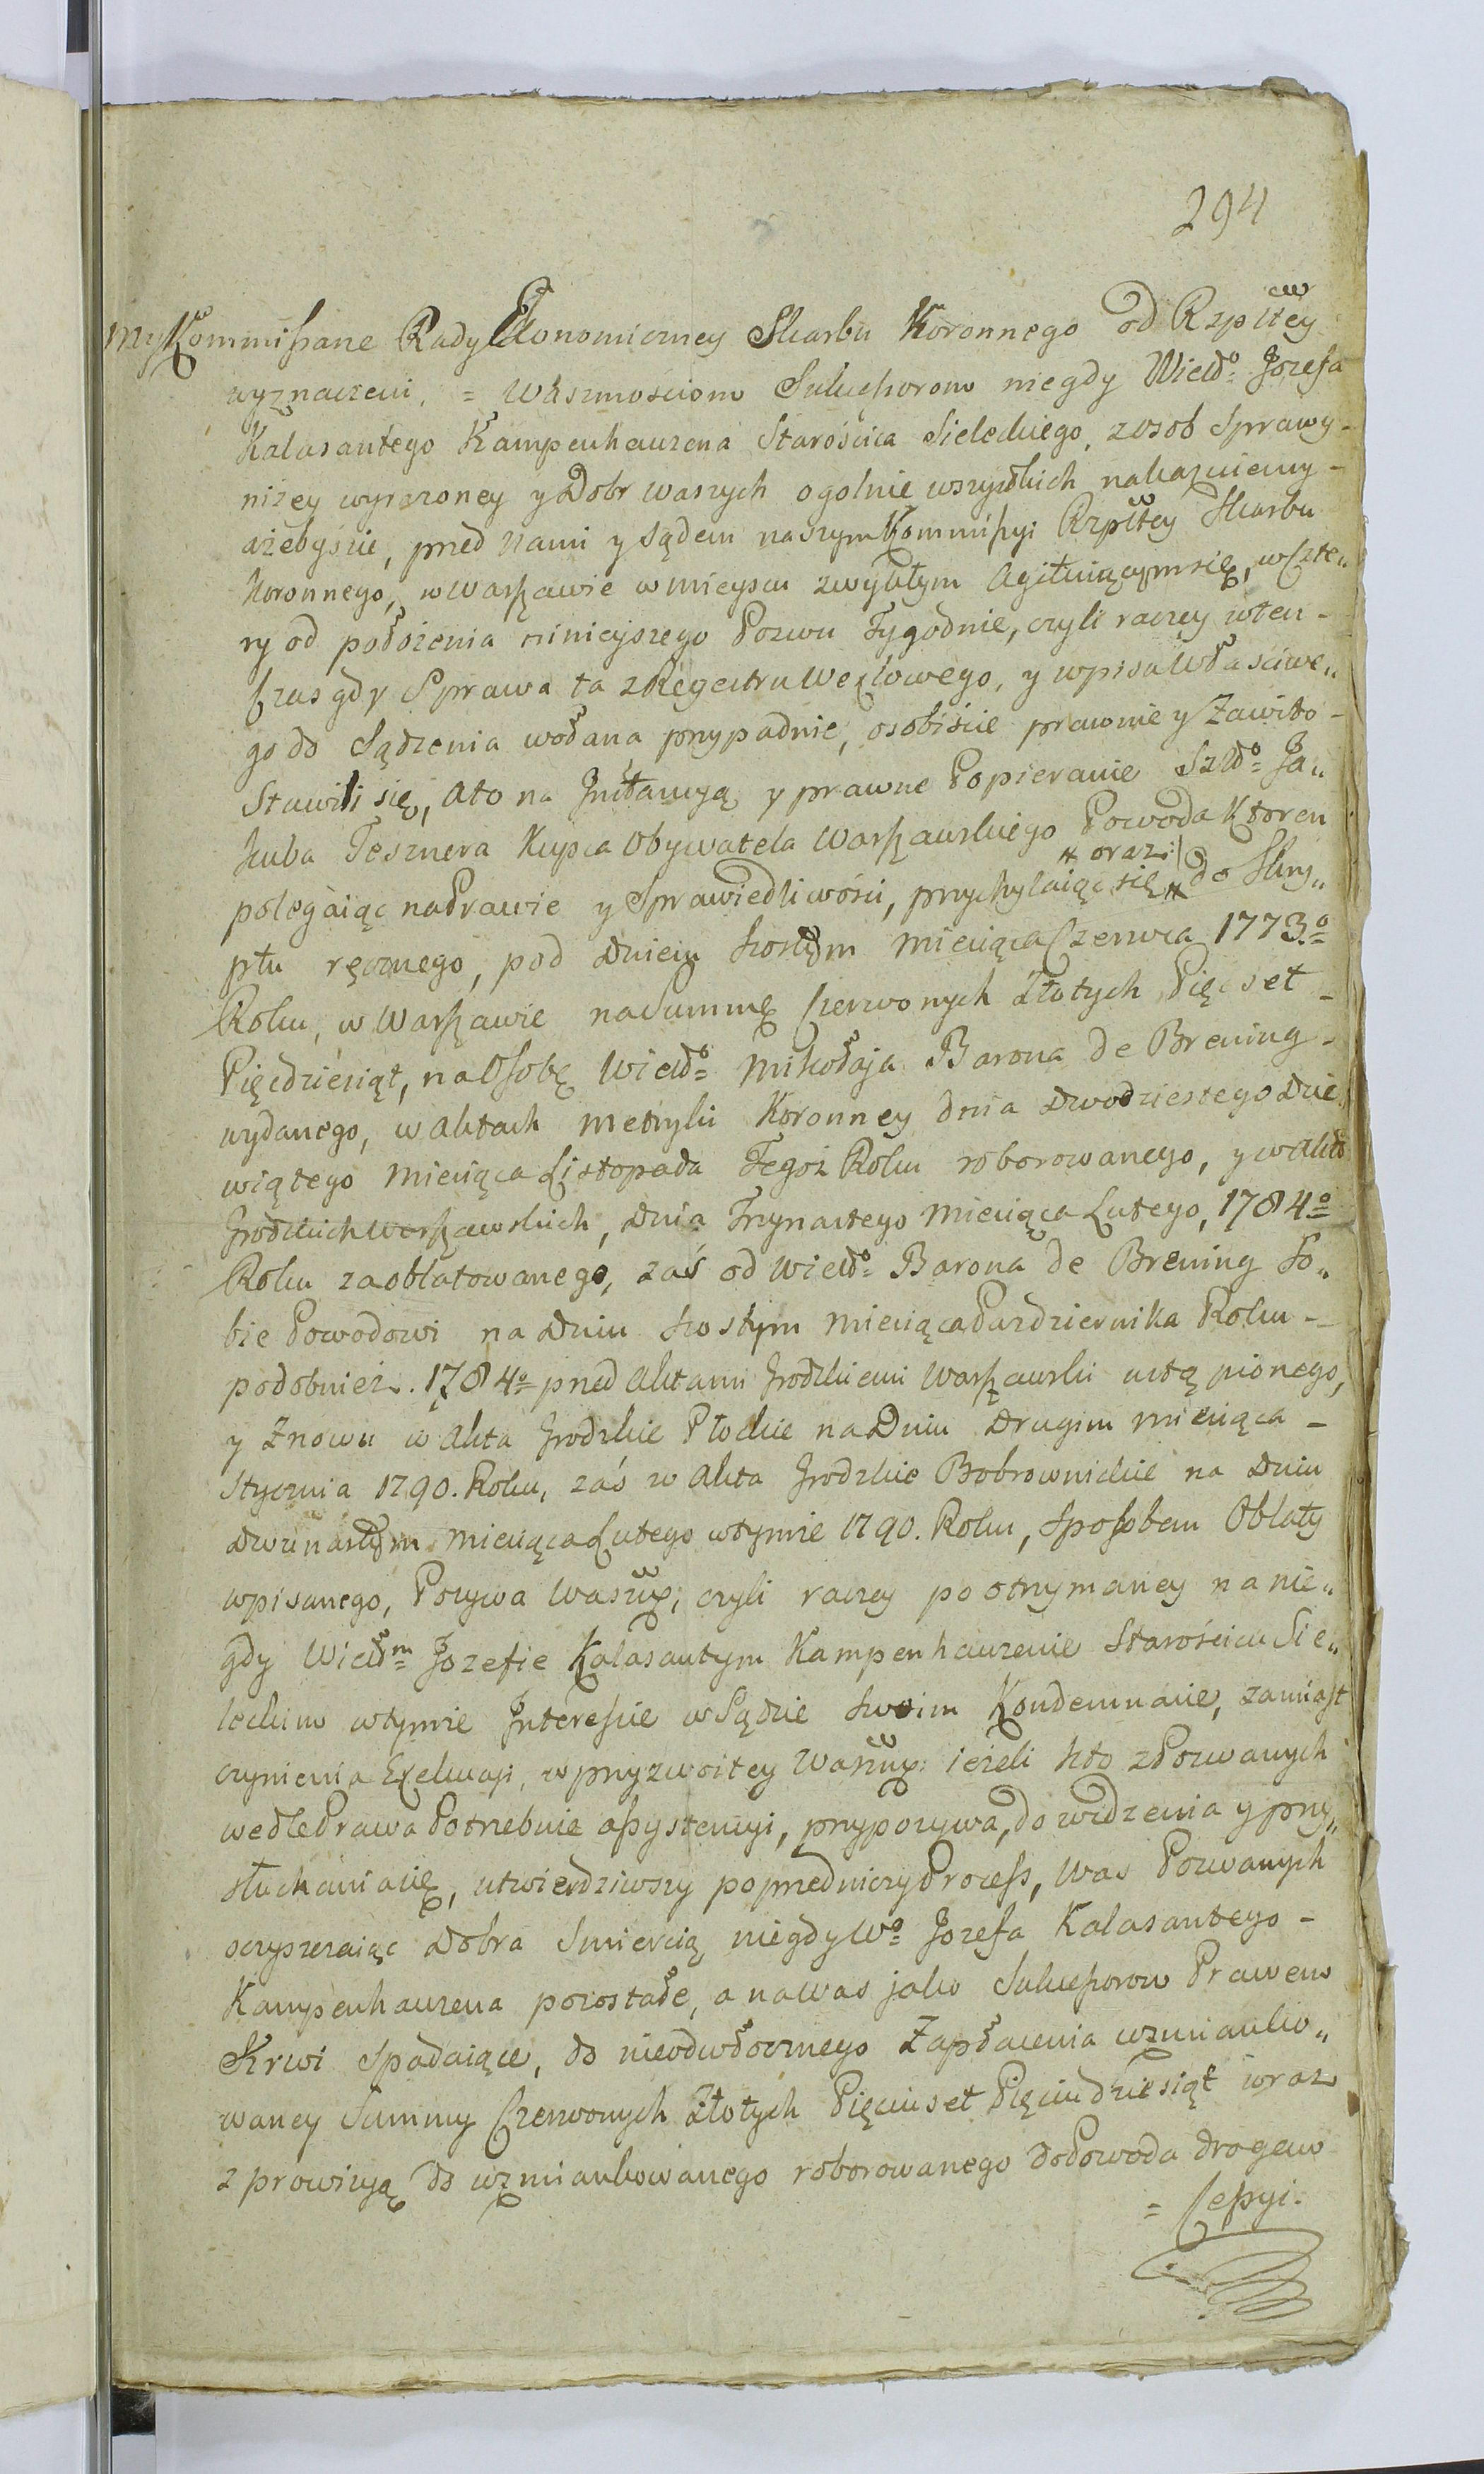 294
My Kommissarze Rady Ekonomiczney Skarbu Koronnego od Rzpltey
wyznaczeni, = Waszmościom Sukcessorom niegdy Wielo Jozefa
Kalasantego Kampenhauzena Starościca Sieleckiego, z osob Sprawy -
niżey wyrażoney y Dobr waszych ogolnie wszystkich nakazuiemy -
ażebyście, przed Nami y Sądem naszym Kommissyi Rzpltey Skarbu
Koronnego, w Warszawie w mieyscu zwykłym agituiącym się, w Czte„
ry od położenia ninieyszego Pozwu Tygodnie, czyli raczey wten -
Czas gdy Sprawa ta z Regestru Wexlowego, y wpisu Właściwe„
go do Sądzenia wołana przypadnie, osobiście prawnie y Zawito -
Stawili się, a to na Instancyą y prawne Popieranie Szlo Ja„
kuba Tesznera Kupca Obywatela Warszawskiego Powoda Ktoren
polegaiąc na Prawie y Sprawiedliwości, przychylaiąc się # do Skry„
# oraz
ptu ręcznego, pod Dniem szostym Miesiąca Czerwca 1773o
Roku, w Warszawie na Summę Czerwonych Złotych Pięćset -
Pięćdziesiąt, na Osobę Wielo Mikołaja Barona de Brening -
wydanego, w Aktach Metryki Koronney dnia Dwudziestego Dzie„
wiątego Miesiąca Listopada Tegoż Roku roborowanego, y w Akta
Grodzkich Warszawskich, Dnia Trzynastego Miesiąca Lutego, 1784o
Roku zaoblatowanego, zaś od Wielo Barona de Brening So„
bie Powodowi na Dniu szostym Miesiąca Pazdziernika Roku -
podobnież. 1784o przed Aktami Grodzkiemi Warszawski ustąpionego,
y Znowu w Akta Grodzkie Płockie na Dniu Drugim Miesiąca -
Stycznia 1790. Roku, zaś w Akta Grodzkie Bobrownickie na Dniu
Dwunastym Miesiąca Lutego w tymże 1790. Roku, Sposobem Oblaty
wpisanego, Pozywa Waszmę; czyli raczey po otrzymaney na nie„
gdy Wielm Jozefie Kalasantym Kampenhauzenie Starościcu Sie„
leckim w tymże Interessie w Sądzie swoim Kondemnacie, zamiast
czynienia Exekucyi, w przyzwoitey Waszmę: ieżeli kto z Pozwanych
wedle Prawa Potrzebuie assystencyi, przypozywa, do widzenia y przy„
słuchania się, utwierdziwszy poprzedniczy Process, Was Pozwanych
oczyszczaiąc Dobra Smiercią niegdy Wo Jozefa Kalasantego -
Kampenhauzena pozostałe, a na Was jako Sukcessorow Prawem
Krwi Spadaiące, do nieodwłocznego Zapłacenia wzmianko„
waney Summy Czerwonych Złotych Pięciuset Pięciudziesiąt wraz
z prowizyą do wzmiankowanego roborowanego do Powoda drogą
= Cessyi.